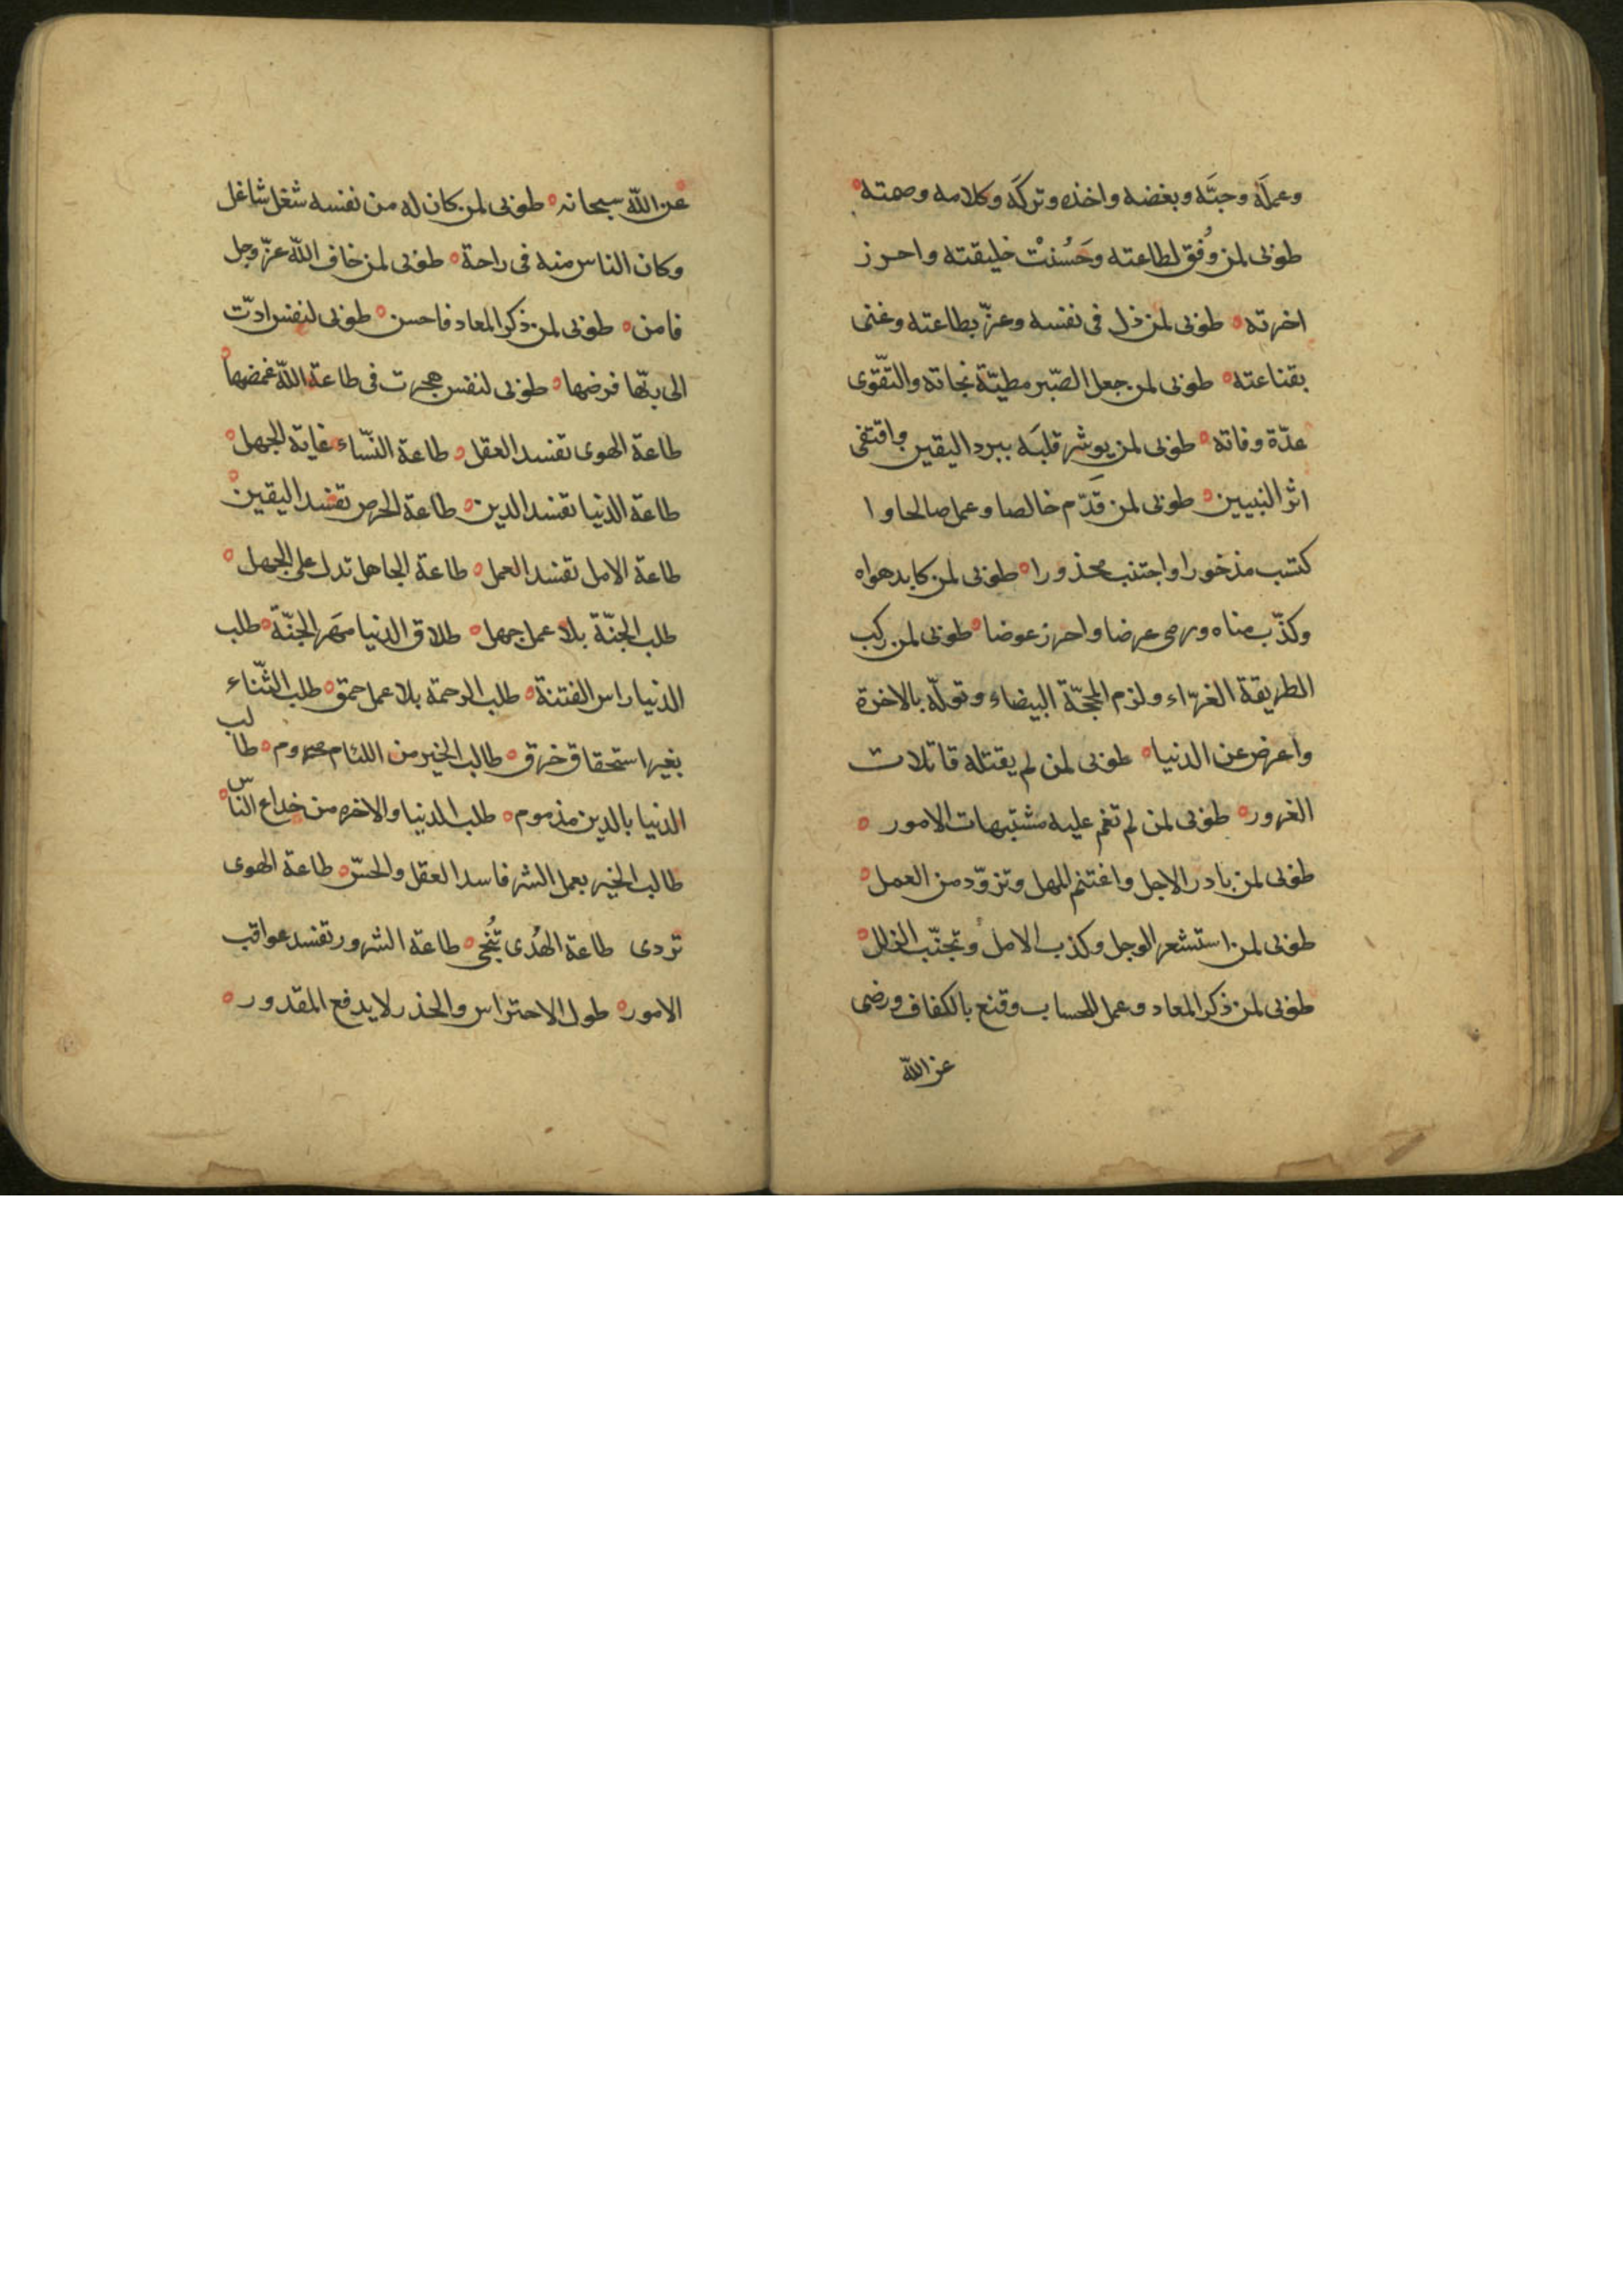 وعملَه وحبَّه وبغضه واخذه وتركَه وكلامه وصمته
طوبى لمن وُفق لطاعته وحَسُنتْ خليقته واحرز
اخرته طوبى لمن ذل فى نفسه وعزّ بطاعته وغنى
بقناعته طوبى لمن جعل الصّبر مطيّة نجاته والتقّوى
عدّة وفاته طوبى لمن يوشر قلبَه ببرد اليقين واقتفى
اثر النبيين طوبى لمن قَدّم خالصا وعمل صالحا و ا
كتسب مذخورا واجتنب محذورا طوبى لمن كابد هواه
وكذّب مناه ورمى عرضا واحرز عوضا طوبى لمن ركب
الطريقة الغرّاء ولزم المحجّة البيضاء وتولّه بالاخرة
واعرض عن الدنيا طوبى لمن لم يقتله قاتلات
الغرور طوبى لمن لم تغم عليه مشتبهات الامور
طوبى لمن بادر الاجل واغتنم المهل وتزوّد من العمل
طوبى لمن استشعر الوجل وكذب الامل وتجنّب الزلل
طوبى لمن ذكر المعاد وعمل للحساب وقنع بالكفاف ورضى
عن الله
عن الله سبحانه طوبى لمن كان له من نفسه شغل شاغل
وكان الناس منه فى راحة طوبى لمن خاف الله عزّ وجل
فامن طوبى لمن ذكر المعاد فاحسن طوبى لنفس ادّت
الى ربّها فرضها طوبى لنفس هجرت فى طاعة الله غمضها
طاعة الهوى تفسد العقل طاعة النّساء غاية الجهل
طاعة الدنيا تفسد الدين طاعة الحرص تفسد اليقين
طاعة الامل تفسد العمل طاعة الجاهل تدل على الجهل
طلب الجنّة بلا عمل جهل طلاق الدنيا مَهر الجنّة طلب
الدنيا راس الفتنة طلب الرحمة بلا عمل حمق طلب الثّناء
بغير استحقاق خرق طالب الخير من اللئام محروم طالب
الدنيا بالدين مذموم طلب الدنيا والاخره من خداع الناس
طالب الخير بعمل الشر فاسد العقل والحسّ طاعة الهوى
تردى طاعة الهُدى تُنجى طاعة الشرور تفسد عواقب
الامور طول الاحتراس والحذر لا يدفع المقدور